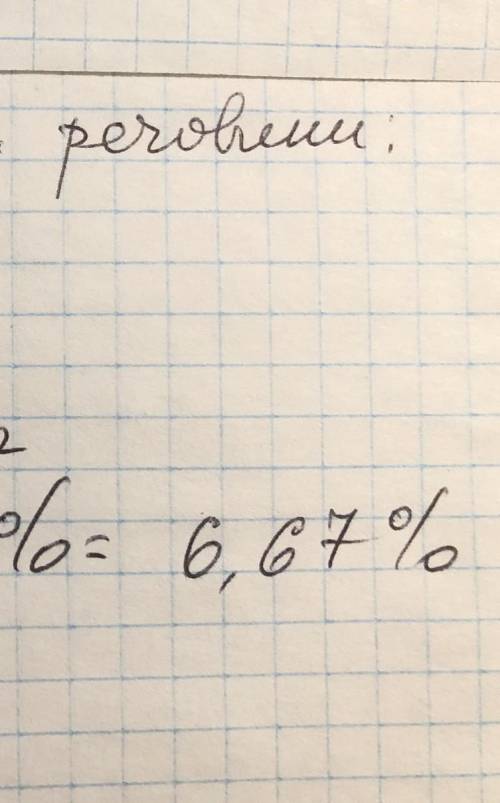 речовини:
г
%= 6,67%